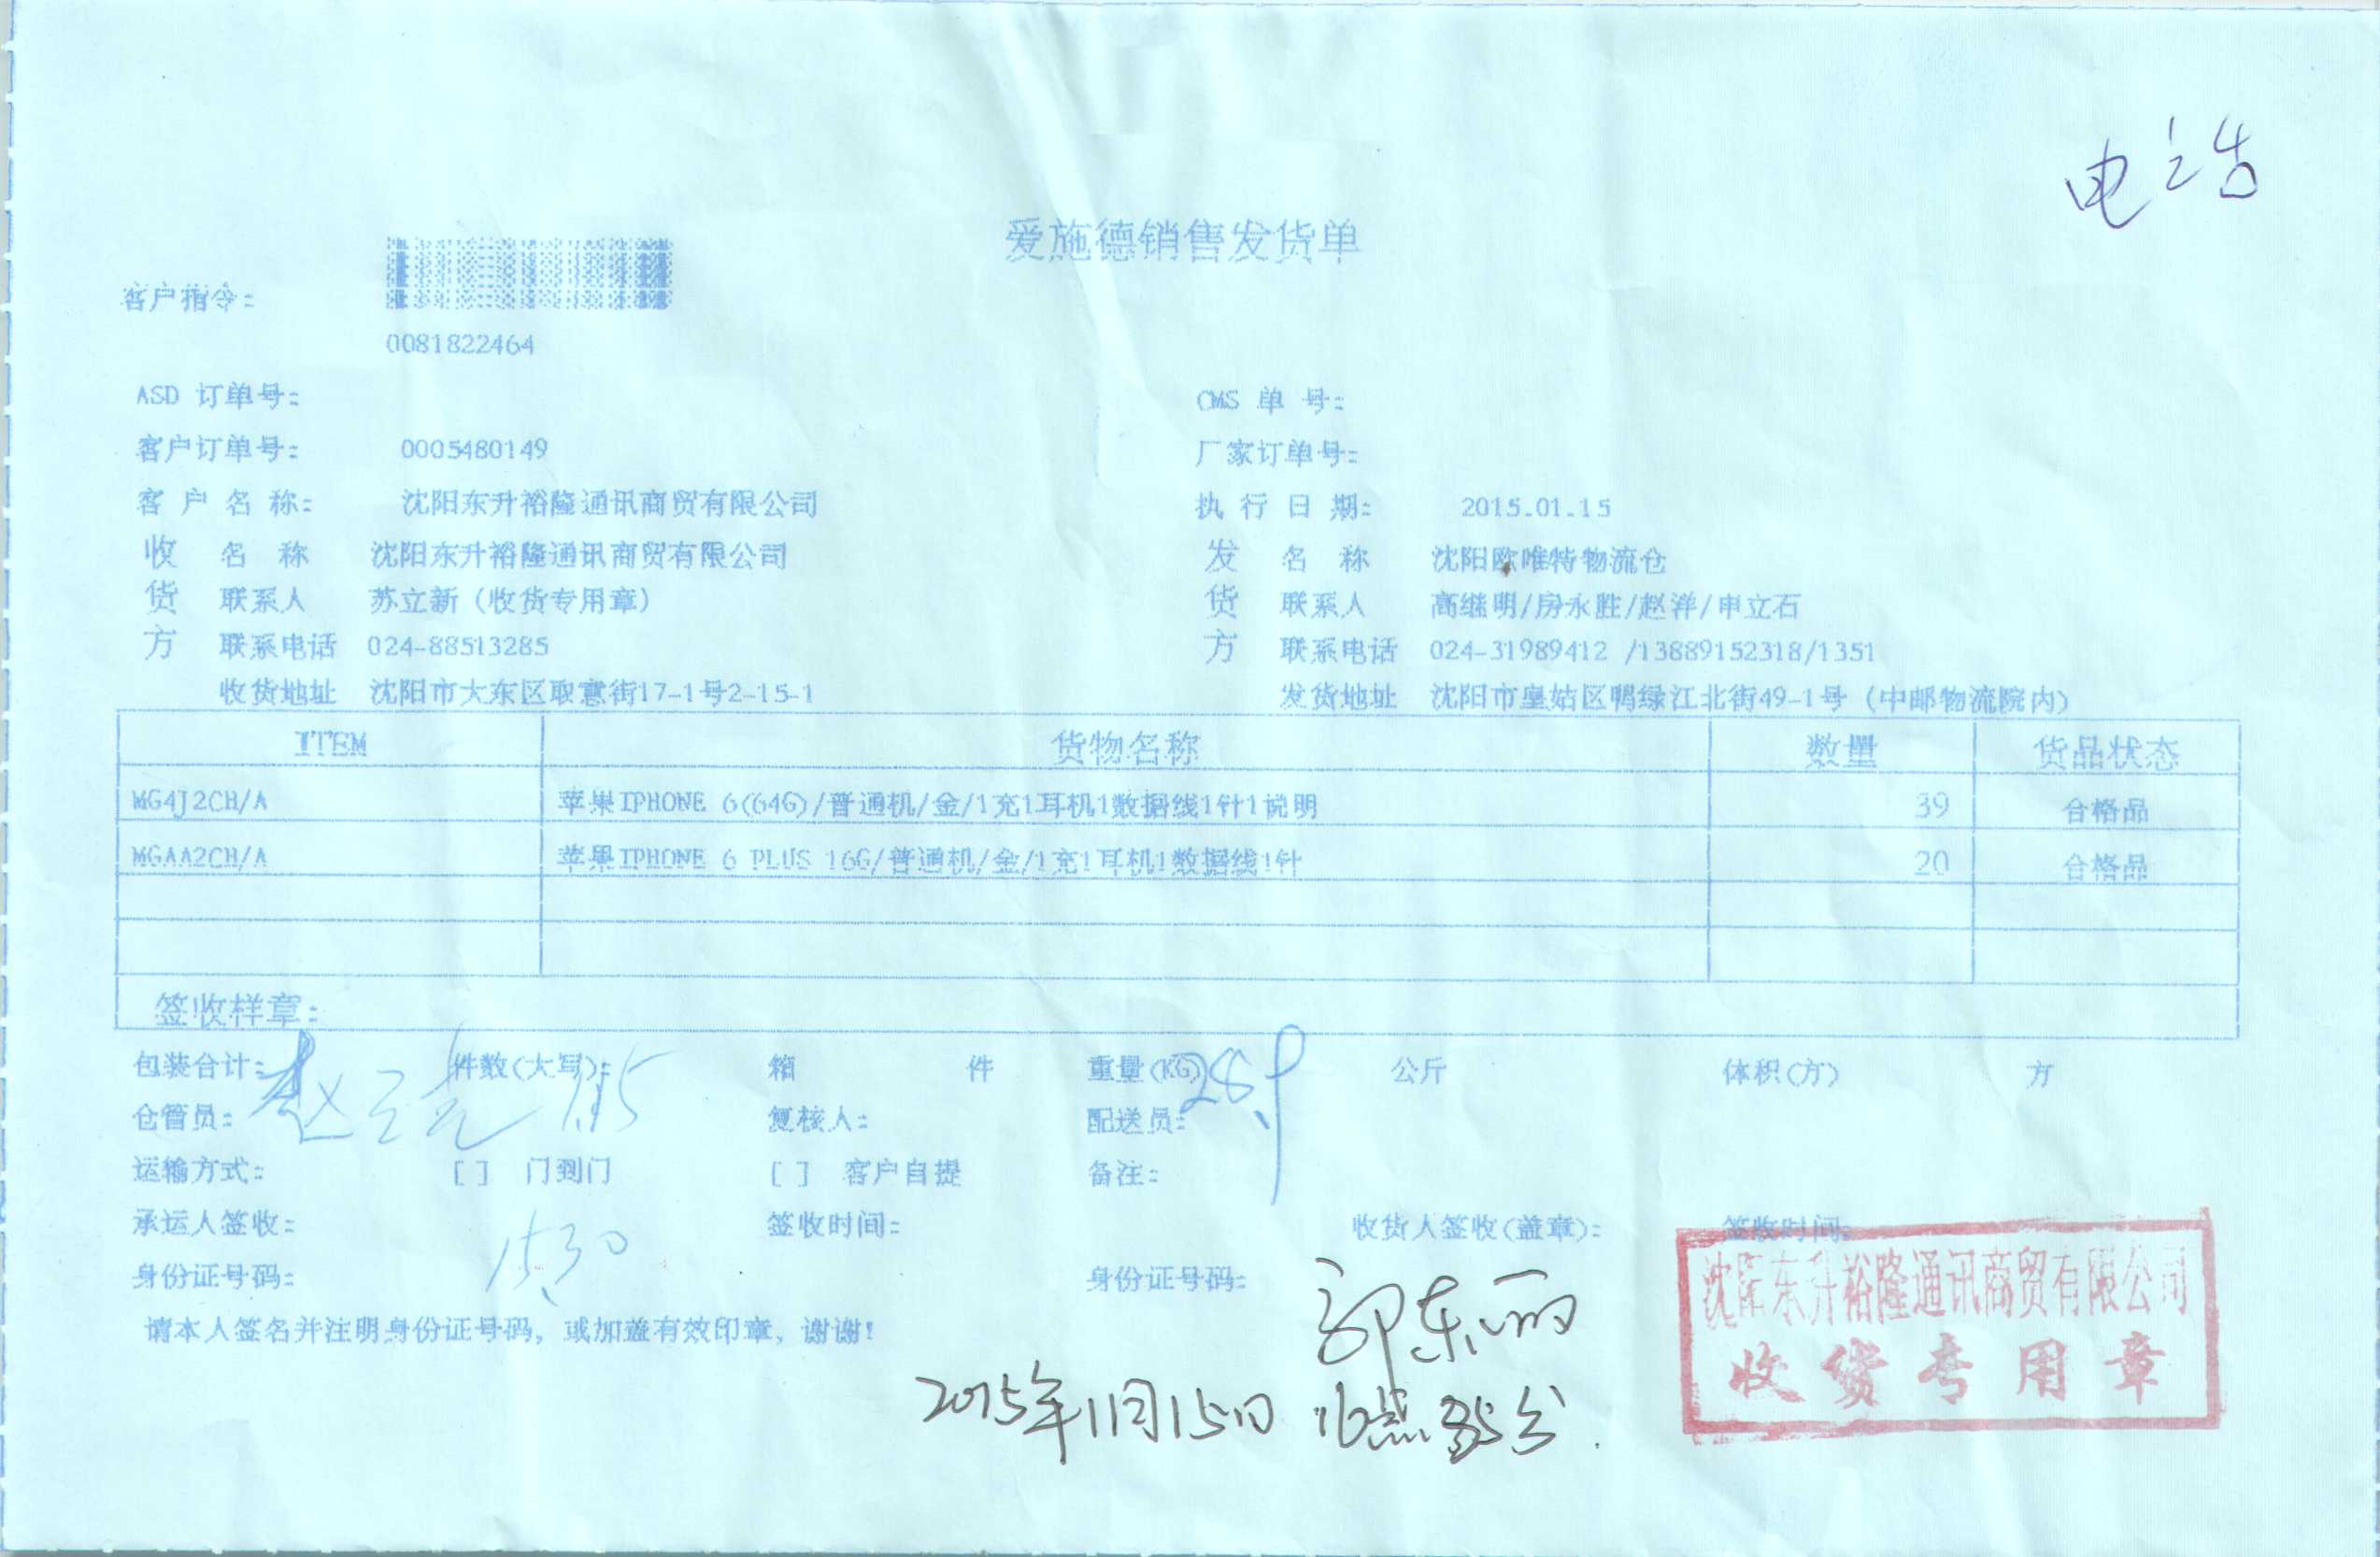 电
爱施德销售发货单
客户指令:
0081822464
ASD 订单号:
CMS 单 号:
客户订单号: 0005480149
厂家订单号:
客 户 名 称: 沈阳东升裕隆通讯商贸有限公司
执 行 日 期: 2015.01.15
收 名 称 沈阳东升裕隆通讯商贸有限公司
发 名 称 沈阳欧唯特物流仓
货 联系人 苏立新(收货专用章)
货 联系人 高继明/房永胜/赵洋/申立石
方 联系电话 024-88513285
方 联系电话 024-31989412 /13889152318/1351
收货地址 沈阳市大东区取意街17-1号2-15-1
发货地址 沈阳市皇姑区鸭绿江北街49-1号(中邮物流院内)
ITEM 货物名称 数量 货品状态
MG4J2CH/A 苹果IPHONE 6(64G)/普通机/金/1充1耳机1数据线1针1说明 39 合格品
MGAA2CH/A 苹果IPHONE 6 PLUS 16G/普通机/金/1充1耳机1数据线1针 20 合格品
签收样章:
包装合计: 件数(大写): 箱 件 重量(KG) 公斤 体积(方) 方
赵 28.9
仓管员: 复核人: 配送员:
运输方式: [ ] 门到门 [ ] 客户自提 备注:
承运人签收: 签收时间: 收货人签收(盖章): 签收时间:
1530
身份证号码: 身份证号码:
郭东丽
沈阳东升裕隆通讯商贸有限公司
收货专用章
请本人签名并注明身份证号码, 或加盖有效印章, 谢谢!
2015年1月15日 16点35分.